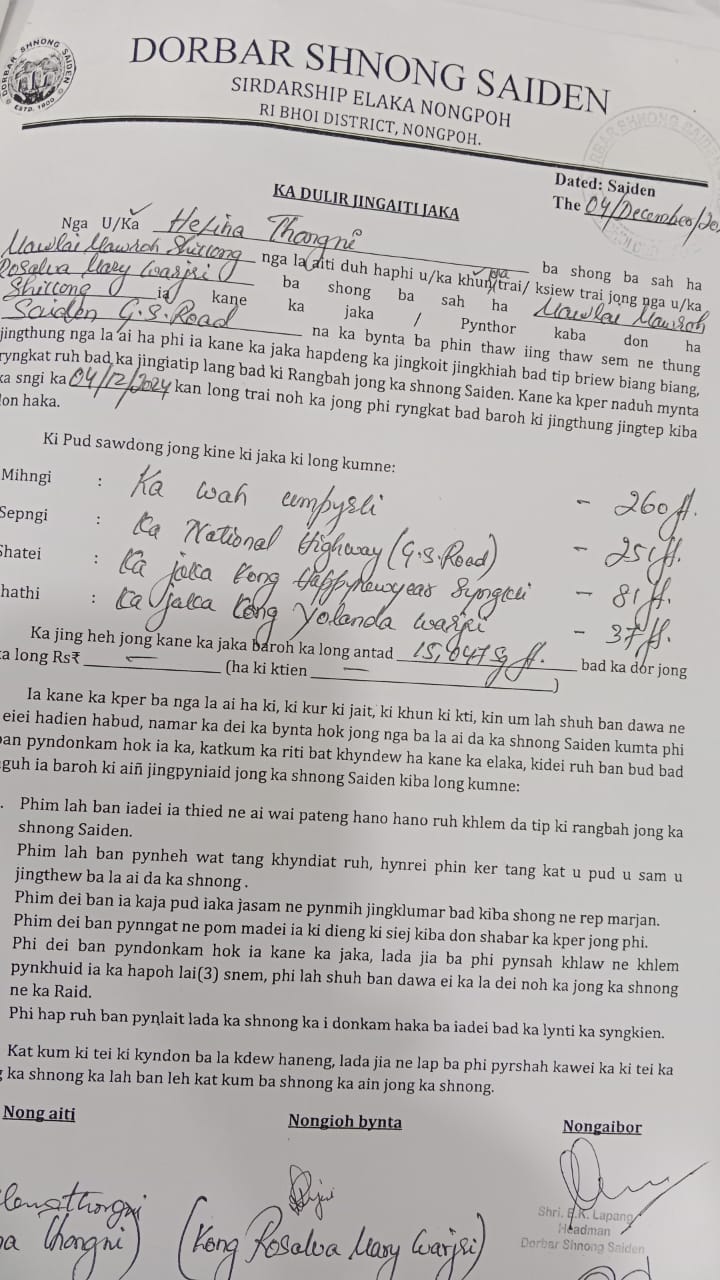 DORBAR SHNONG SAIDEN
ESTD. 1900
DORBAR SHNONG SAIDEN
SIRDARSHIP ELAKA NONGPOH
RI BHOI DISTRICT, NONGPOH.
KA DULIR JINGAITI JAKA
Dated: Saiden
The 04/December/20
Nga U/Ka Helina Thangni ba shong ba sah ha
Mawlai Mawroh Shillong nga la aiti duh haphi u/ka khun/trai/ ksiew trai jong nga u/ka
Rosalva Mary Warjri ba shong ba sah ha Mawlai Mawroh
Shillong ia kane ka jaka / Pynthor kaba don ha
Saiden G.S. Road na ka bynta ba phin thaw iing thaw sem ne thung
jingthung nga la ai ha phi ia kane ka jaka hapdeng ka jingkoit jingkhiah bad tip briew biang biang,
ryngkat ruh bad ka jingiatip lang bad ki Rangbah jong ka shnong Saiden. Kane ka kper naduh mynta
ka sngi ka 04/12/2024 kan long trai noh ka jong phi ryngkat bad baroh ki jingthung jingtep kiba
don haka.
Ki Pud sawdong jong kine ki jaka ki long kumne:
Mihngi : Ka wah umpyrli - 260 ft.
Sepngi : Ka National Highway (G.S. Road) - 251 ft.
Shatei : Ka jaka Kong Happynewyear Syngkli - 81 ft.
hathi : Ka jaka Kong Yolanda Warjri - 37 ft.
Ka jing heh jong kane ka jaka baroh ka long antad 15,047 sq ft. bad ka dor jong
ka long Rs₹ — (ha ki ktien — )
Ia kane ka kper ba nga la ai ha ki, ki kur ki jait, ki khun ki kti, kin um lah shuh ban dawa ne
eiei hadien habud, namar ka dei ka bynta hok jong nga ba la ai da ka shnong Saiden kumta phi
ban pyndonkam hok ia ka, katkum ka riti bat khyndew ha kane ka elaka, kidei ruh ban bud bad
guh ia baroh ki aiñ jingpyniaid jong ka shnong Saiden kiba long kumne:
. Phim lah ban iadei ia thied ne ai wai pateng hano hano ruh khlem da tip ki rangbah jong ka
shnong Saiden.
Phim lah ban pynheh wat tang khyndiat ruh, hynrei phin ker tang kat u pud u sam u
jingthew ba la ai da ka shnong .
Phim dei ban ia kaja pud iaka jasam ne pynmih jingklumar bad kiba shong ne rep marjan.
Phim dei ban pynngat ne pom madei ia ki dieng ki siej kiba don shabar ka kper jong phi.
Phi dei ban pyndonkam hok ia kane ka jaka, lada jia ba phi pynsah khlaw ne khlem
pynkhuid ia ka hapoh lai(3) snem, phi lah shuh ban dawa ei ka la dei noh ka jong ka shnong
ne ka Raid.
Phi hap ruh ban pynlait lada ka shnong ka i donkam haka ba iadei bad ka lynti ka syngkien.
Kat kum ki tei ki kyndon ba la kdew haneng, lada jia ne lap ba phi pyrshah kawei ka ki tei ka
ka shnong ka lah ban leh kat kum ba shnong ka ain jong ka shnong.
Nong aiti
Nongioh bynta
Nongaibor
Thangni)
(Kong Rosalva Mary Warjri)
Shri. B.K. Lapang
Headman
Dorbar Shnong Saiden